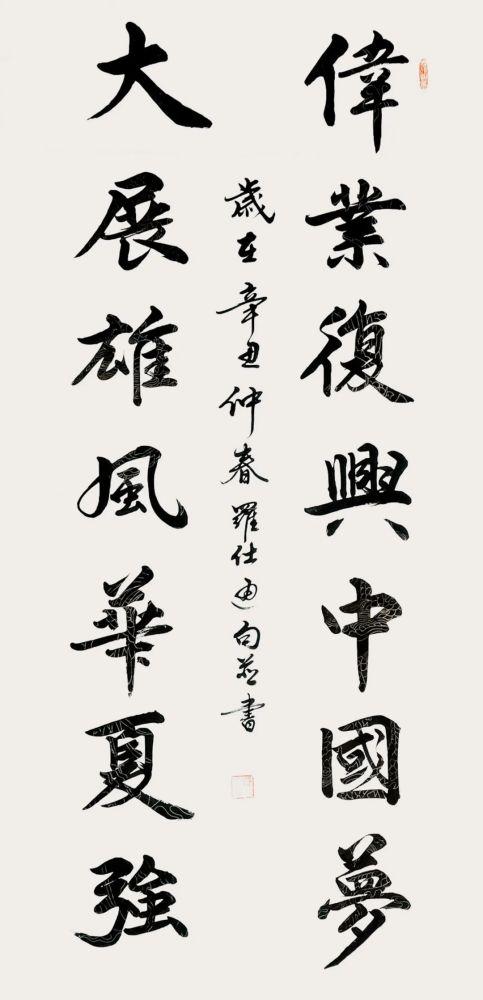 偉業復興中國夢
大展雄風華夏強
歲在辛丑仲春羅仕迪句並書